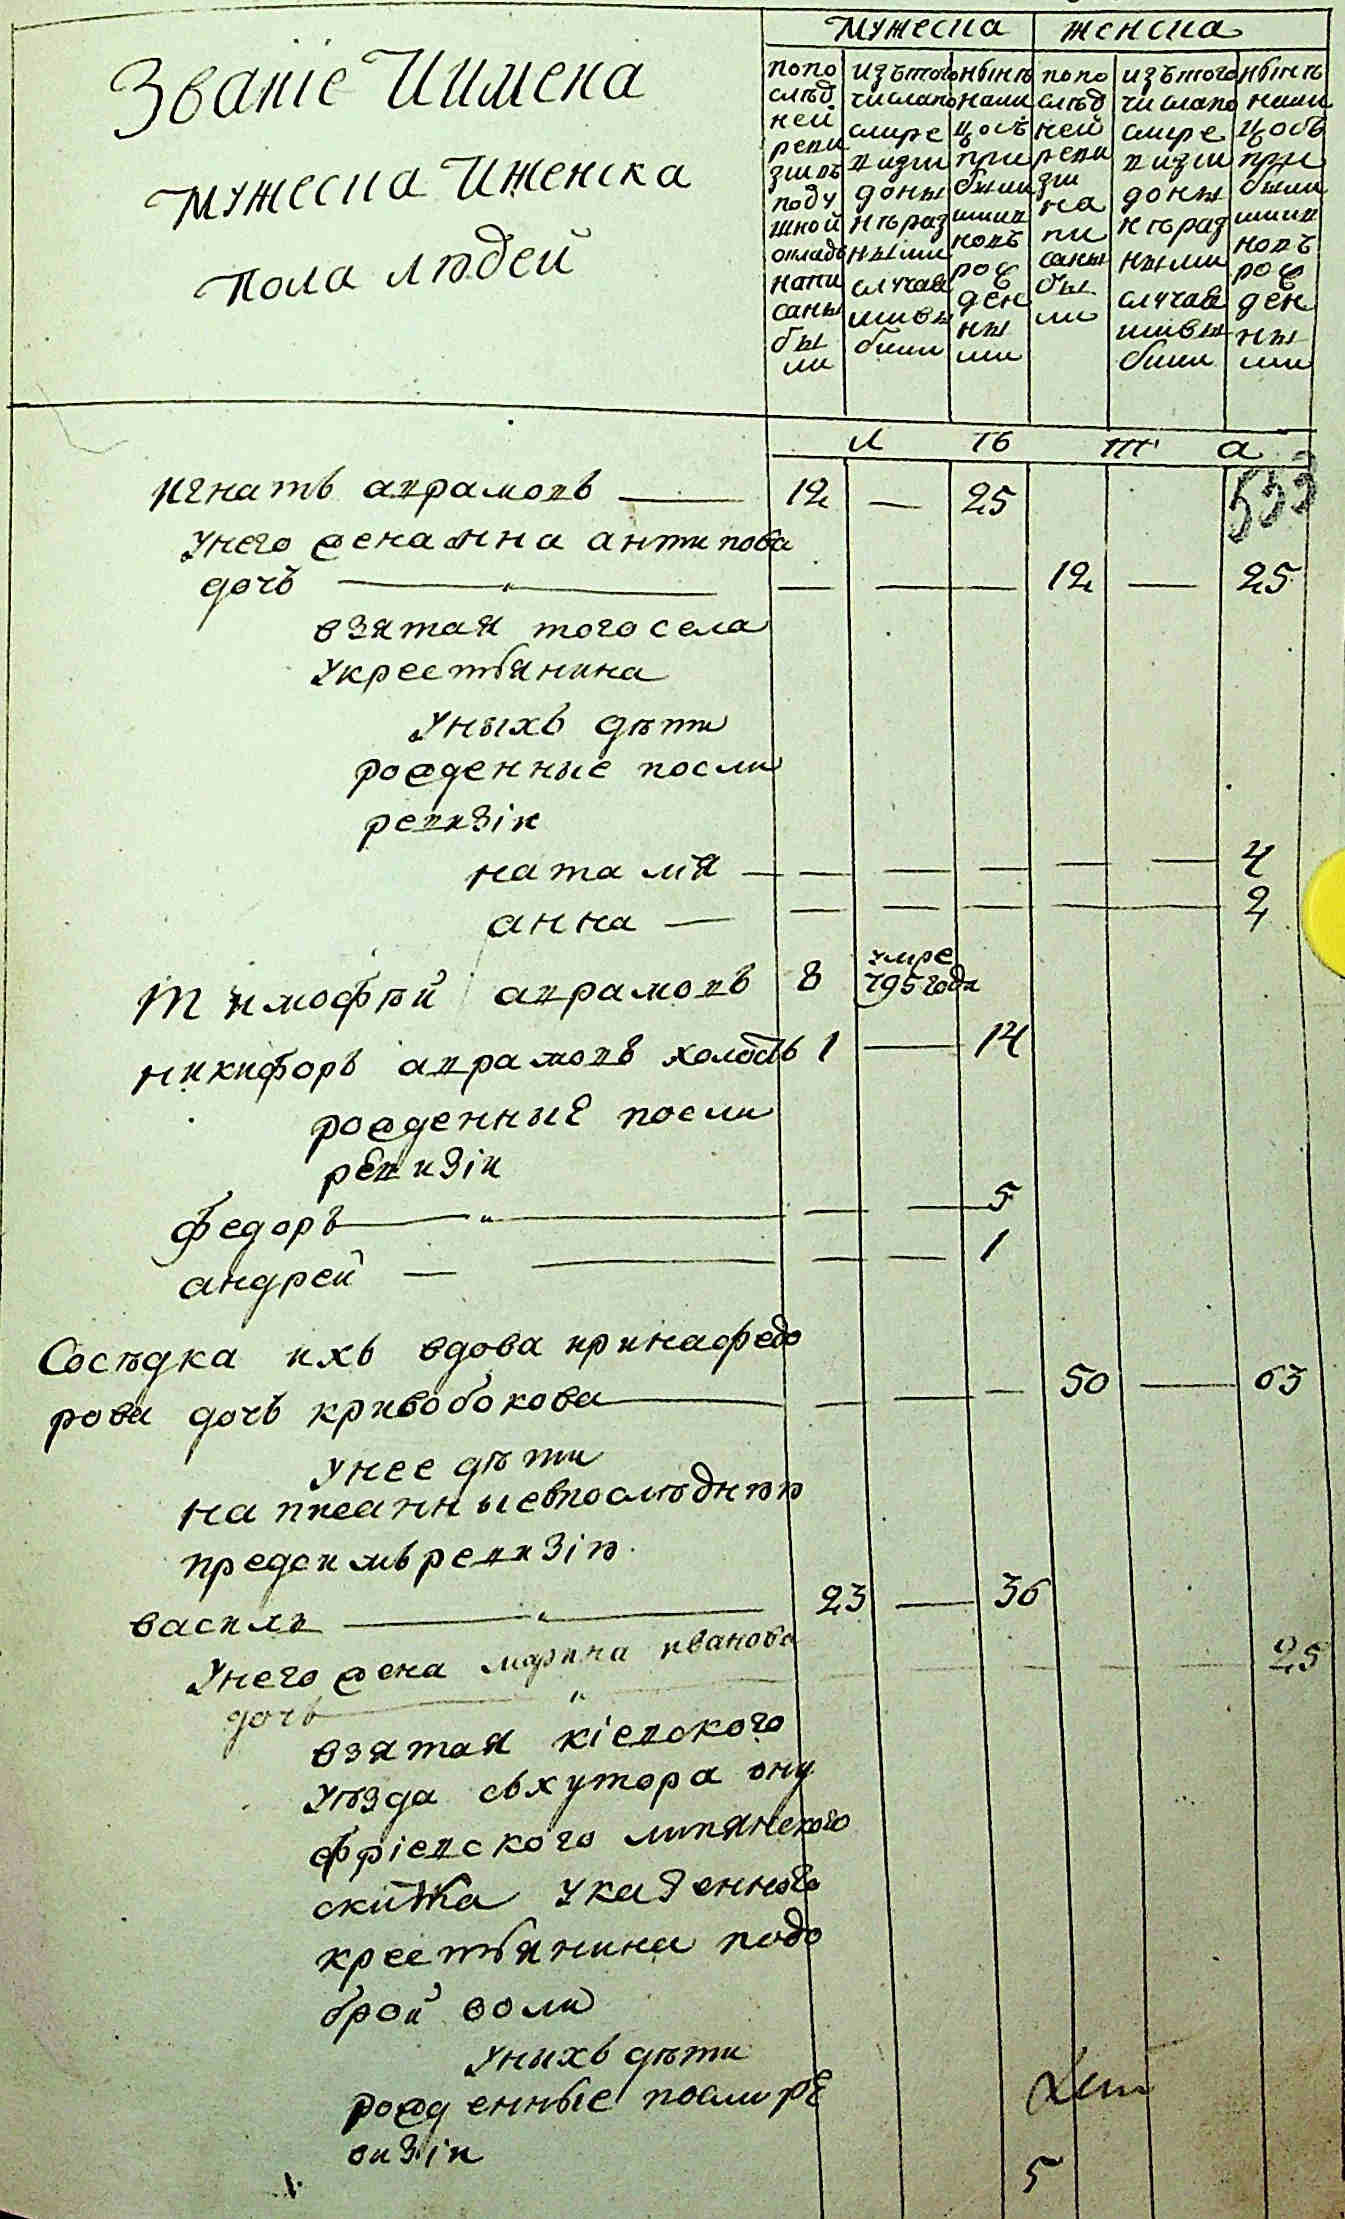 мужеска женска
Званіе Иимена
мужеска Иженска
пола людей
попо слѣд ней реви зіи въ поду шной окладъ напи саны бы ли
изътого числапо смире визіи доны нѣраз ными случаи ивы были
нынѣ нали цость при бывш новъ рож ден ны ми
попо слѣд ней реви зіи на пи саны бы ли
изътого числапо смире визіи доны нѣраз ными случаи ивы были
нынѣ нали цость при бывш новъ рож ден ны ми
л ѣ т а
игнатъ аврамовъ 12 — 25 533
Унего жена анна антипова
дочъ — — — 12 — 25
взятая того села
Укрестьянина
Уныхъ дѣти
рожденные посли
ревизіи
наталія — — — — — 4
анна — — — — — 2
Тимофѣй аврамовъ 8 умре 795 года
никифоръ аврамовъ холостъ 1 — 14
рожденные посли
ревизіи
федоръ — — 5
андрей — — 1
Сосѣдка ихъ вдова иринафедо
рова дочъ кривобокова — — — 50 — 63
Унее дѣти
написанныевпослѣднѣй
предсимъревизіѣ
василь 23 — 36
Унего жена марина иванова
дочъ 25
взятая кіевского
Уѣзда съхутора ону
фріевского липянского
скитка Указенного
крестьянина подо
брой воли
Уныхъ дѣти
рожденные послире
визіи
5